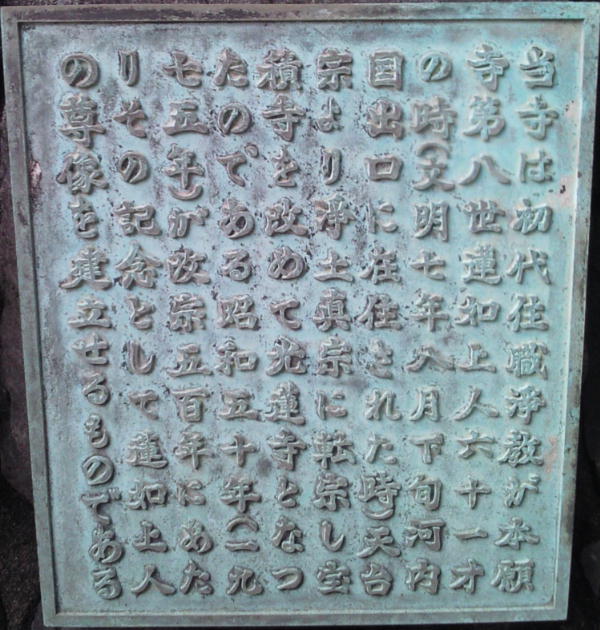 当寺は初代住職浄教が本願
寺第八世蓮如上人六十一才
の時(文明七年八月下旬河内
国出口に在住された時)天台
宗より浄土真宗に転宗し宝
積寺を改めて光蓮寺となつ
たのである昭和五十年(一九
七五年)が改宗五百年にあた
りその記念として蓮如上人
の尊像を建立せるものである